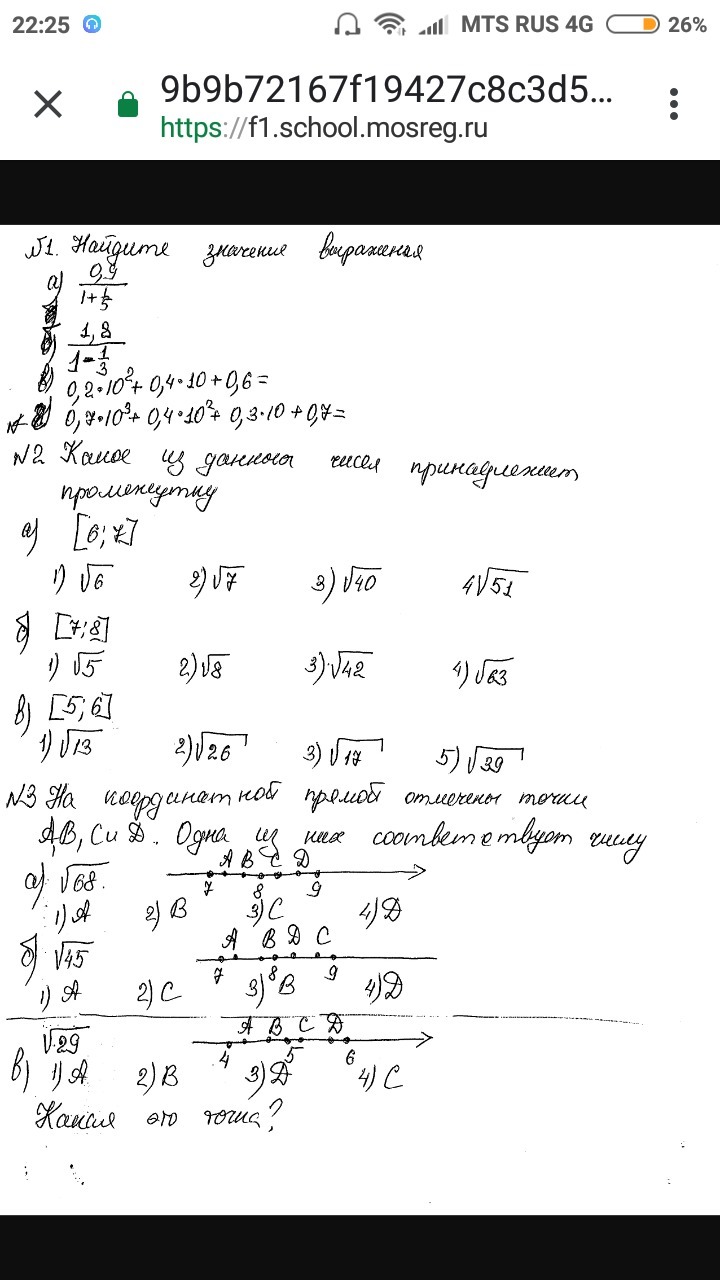 22:25 MTS RUS 4G 26%
9b9b72167f19427c8c3d5...
https://f1.school.mosreg.ru
№1. Найдите значение выражения
а) 0,9 / 1+1/5
б) 1,8 / 1-1/3
в) 0,2·10²+0,4·10+0,6=
0,7·10³+0,4·10²+0,3·10+0,7=
№2 Какое из данных чисел принадлежит
промежутку
а) [6;7]
1) √6 2) √7 3) √40 4 √51
б) [7;8]
1) √5 2) √8 3) √42 4) √63
в) [5;6]
1) √13 2) √26 3) √17 5) √39
№3 На координатной прямой отмечены точки
А,В,С и D. Одна из них соответствует числу
а) √68. A B C D
7 8 9
1) А 2) В 3) С 4) D
б) √45 A B D C
7 8 9
1) А 2) С 3) В 4) D
√29 A B C D
4 5 6
в) 1) А 2) В 3) D 4) С
Какая это точка?